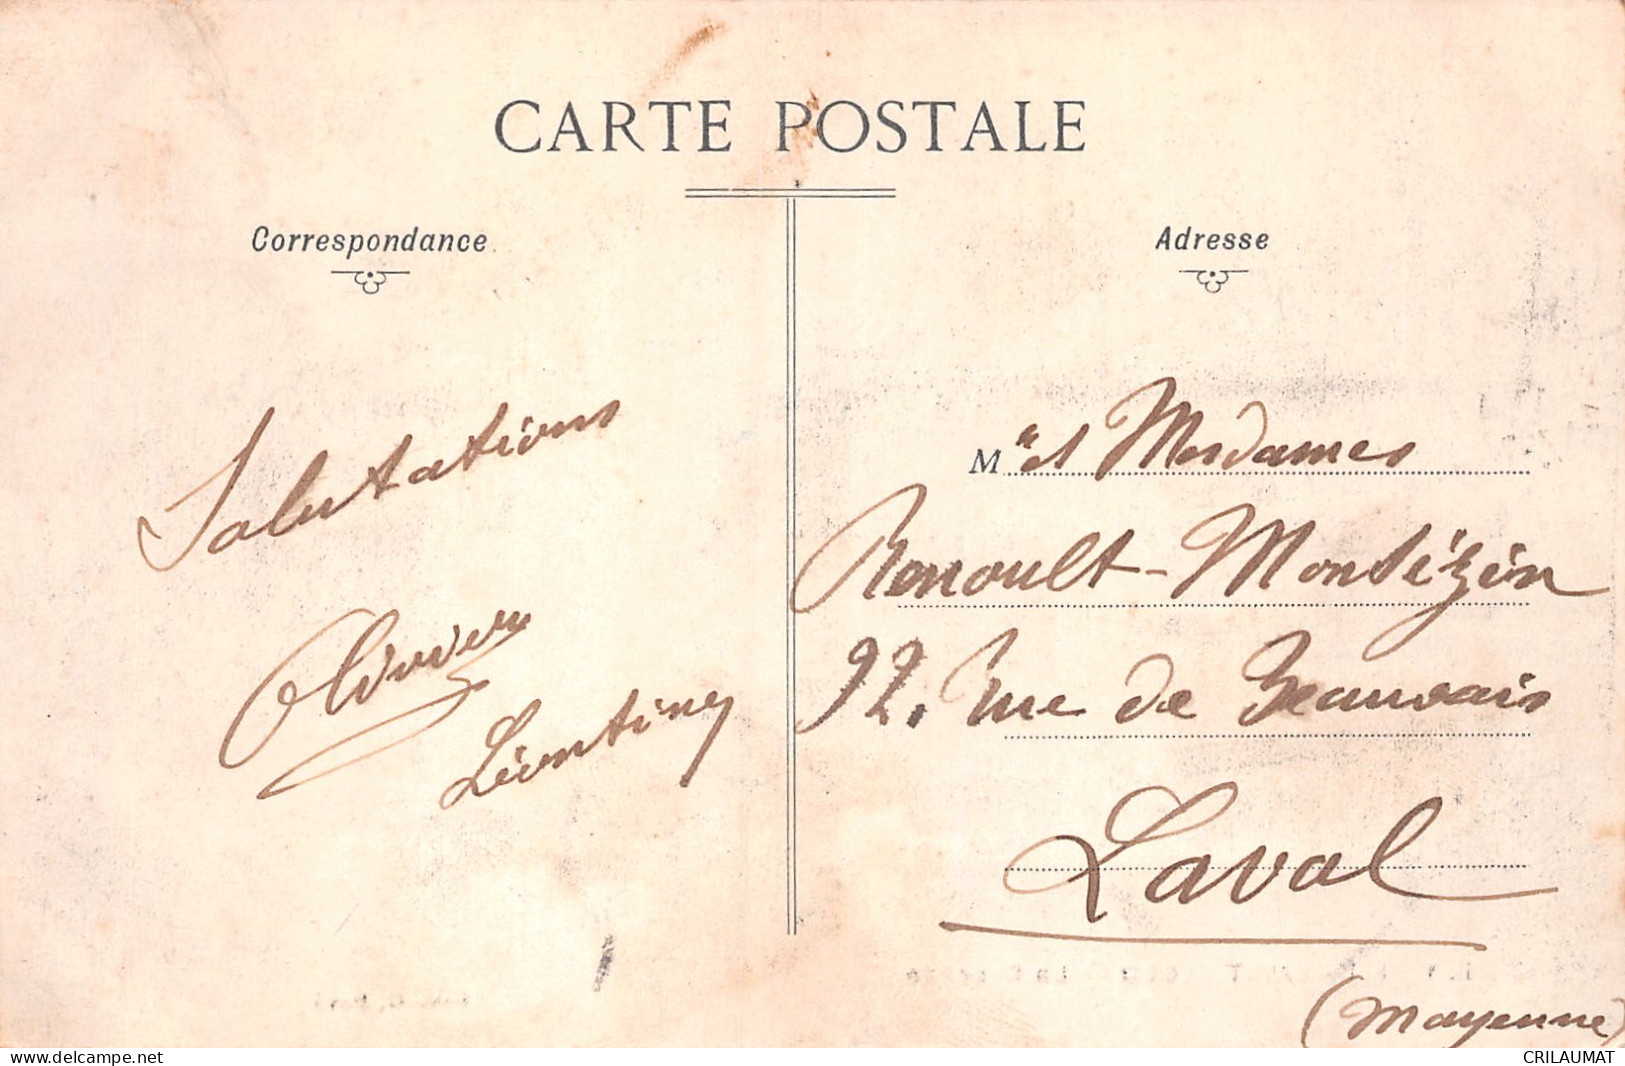 CARTE POSTALE
Correspondance
Adresse
Salutations
Olivier
Léontine
M" et Mesdames
Renoult-Montézin
92, rue de Beauvais
Laval
(Mayenne)
www.delcampe.net
CRILAUMAT